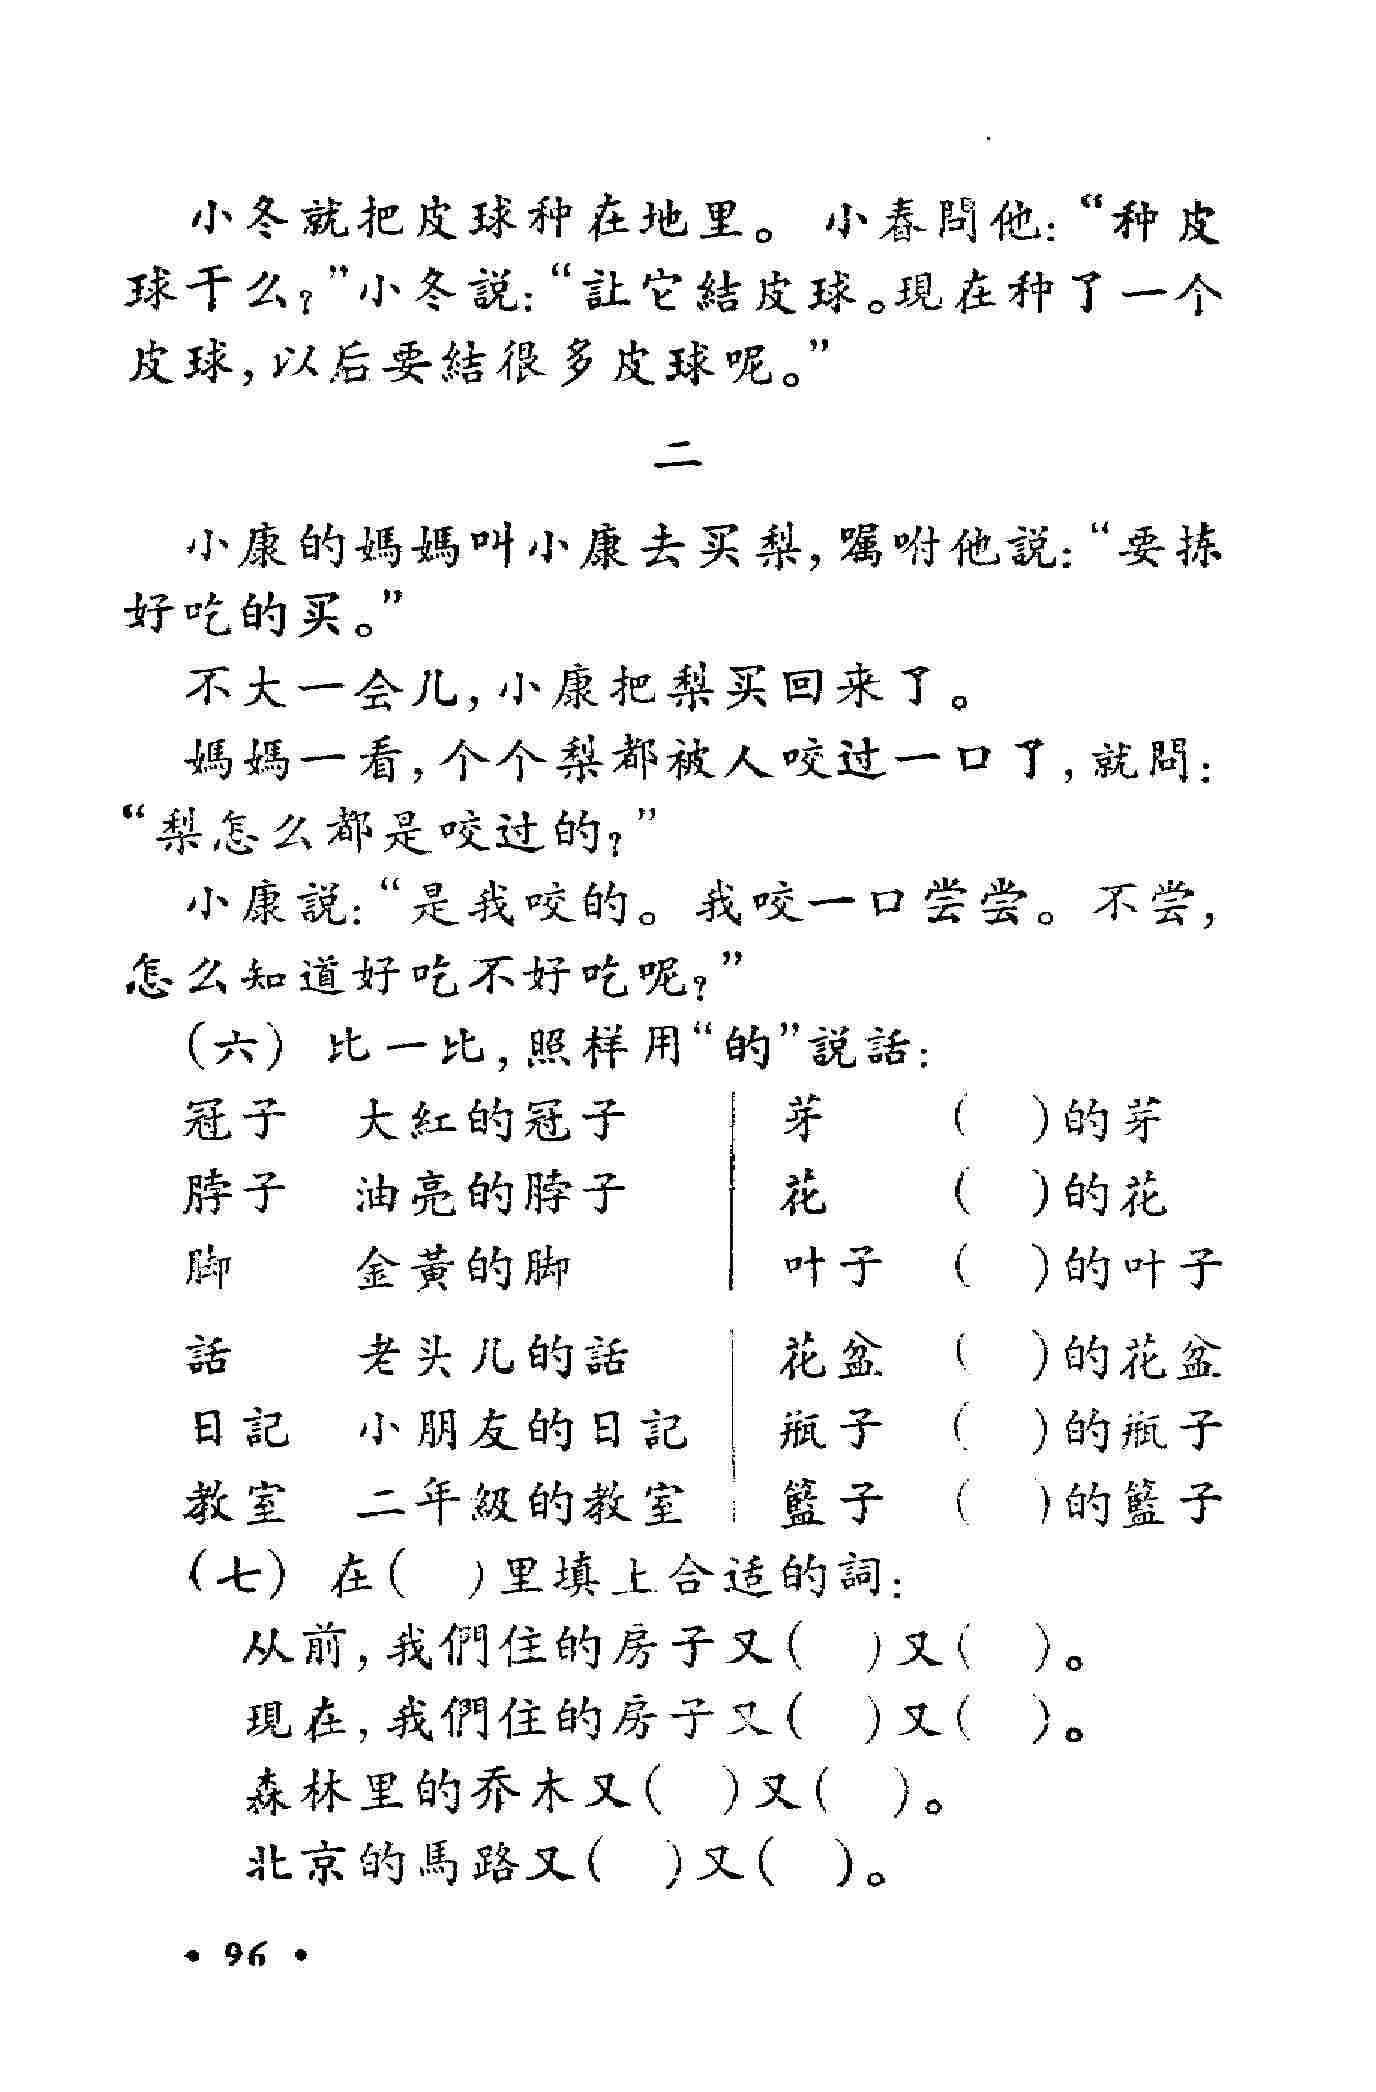 小冬就把皮球种在地里。 小春問他:“种皮
球干么?”小冬説:“註它結皮球。現在种了一个
皮球,以后要結很多皮球呢。”
二
小康的媽媽叫小康去买梨,嘱咐他説:“要拣
好吃的买。”
不大一会儿,小康把梨买回来了。
媽媽一看,个个梨都被人咬过一口了,就問:
“梨怎么都是咬过的?”
小康説:“是我咬的。 我咬一口尝尝。 不尝,
怎么知道好吃不好吃呢?”
(六) 比一比,照样用“的”説話:
冠子 大紅的冠子 芽 ( )的芽
脖子 油亮的脖子 花 ( )的花
脚 金黃的脚 叶子 ( )的叶子
話 老头儿的話 花盆 ( )的花盆
日記 小朋友的日記 瓶子 ( )的瓶子
教室 二年級的教室 籃子 ( )的籃子
(七) 在( )里填上合适的詞:
从前,我們住的房子又( )又( )。
現在,我們住的房子又( )又( )。
森林里的乔木又( )又( )。
北京的馬路又( )又( )。
• 96 •